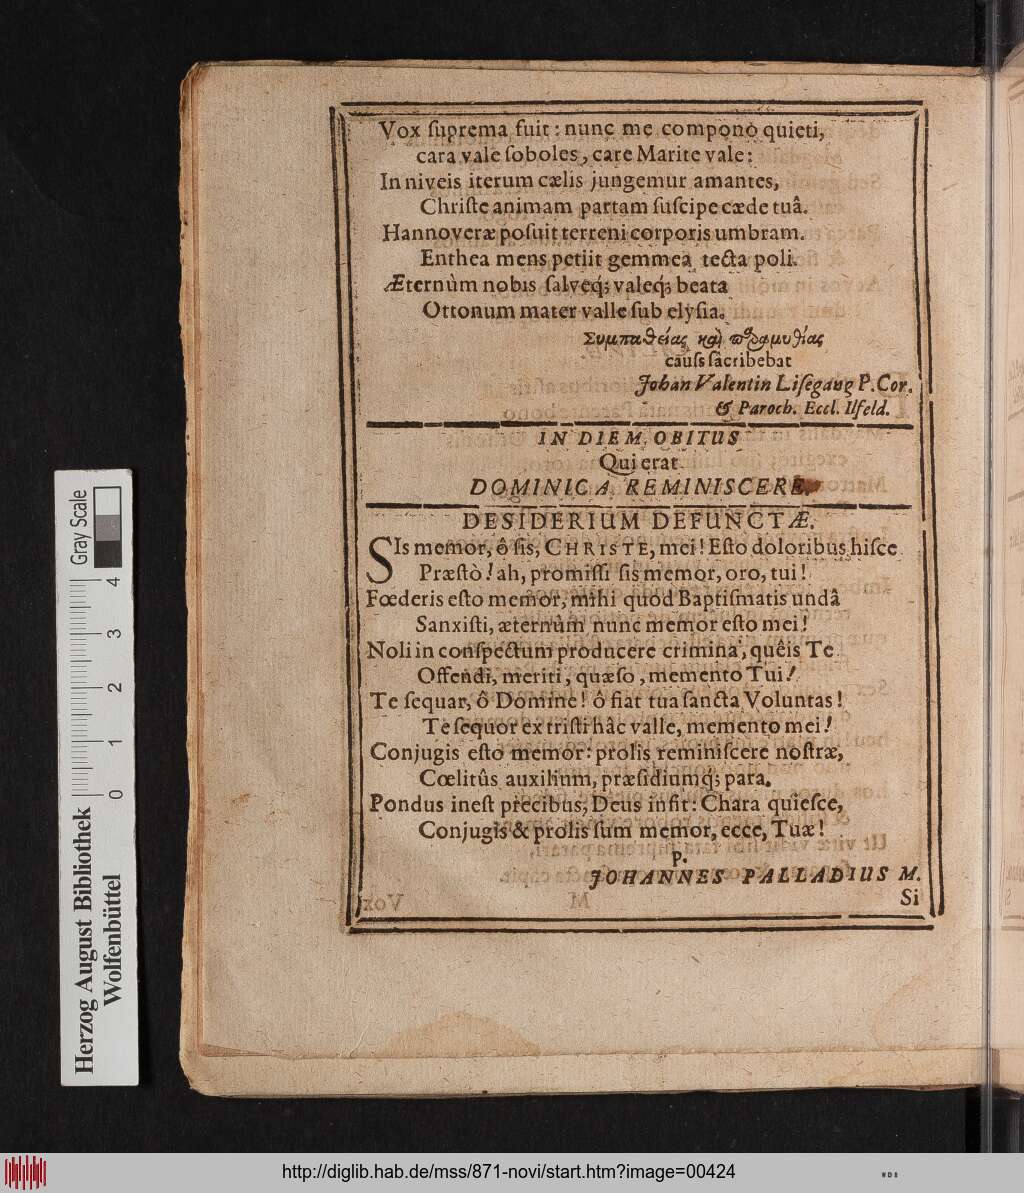 Vox ſuprema fuit : nunc me compono quieti,
cara vale ſoboles, care Marite vale:
In niveis iterum cælis jungemur amantes,
Chriſte animam partam ſuſcipe cæde tuâ.
Hannoveræ poſuit terreni corporis umbram.
Enthea mens petiit gemmea tecta poli.
Æternùm nobis ſalveq́; valeq́; beata
Ottonum mater valle ſub elyſia.
Συμπαθείας καὶ παραμυθίας
cauſs ſâcribebat
Johan Valentin Liſegaug P. Cor.
& Paroch. Eccl. Ilfeld.
IN DIEM OBITUS
Qui erat
DOMINICA REMINISCERE.
DESIDERIUM DEFUNCTÆ.
SIs memor, ô ſis, CHRISTE, mei! Eſto doloribus hiſce
Præſtò! ah, promiſſi ſis memor, oro, tui!
Fœderis eſto memor, mihi quod Baptiſmatis undâ
Sanxiſti, æternùm nunc memor eſto mei!
Noli in conſpectum producere crimina, quêis Te
Offendi, meriti, quæſo, memento Tui!
Te ſequar, ô Domine! ô fiat tua ſancta Voluntas!
Te ſequor ex triſti hâc valle, memento mei!
Conjugis eſto memor: prolis reminiſcere noſtræ,
Cœlitûs auxilium, præſidiumq́; para.
Pondus ineſt precibus, Deus inſit: Chara quieſce,
Conjugis & prolis ſum memor, ecce, Tuæ!
P.
JOHANNES PALLADIUS M.
Si
Gray Scale
4
3
2
1
0
Herzog August Bibliothek
Wolfenbüttel
http://diglib.hab.de/mss/871-novi/start.htm?image=00424